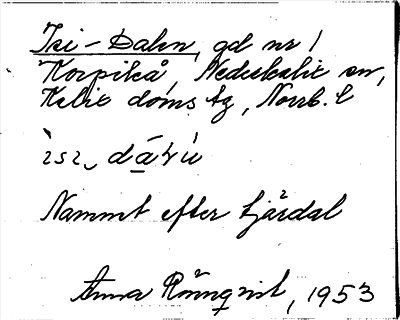 Isi-Dalen, gd nr 1
Korpikå, Nederkalix sn,
Kalix doms. tg, Norrb. l
Namnt efter fjärdal
Anna Rönnqvist, 1953